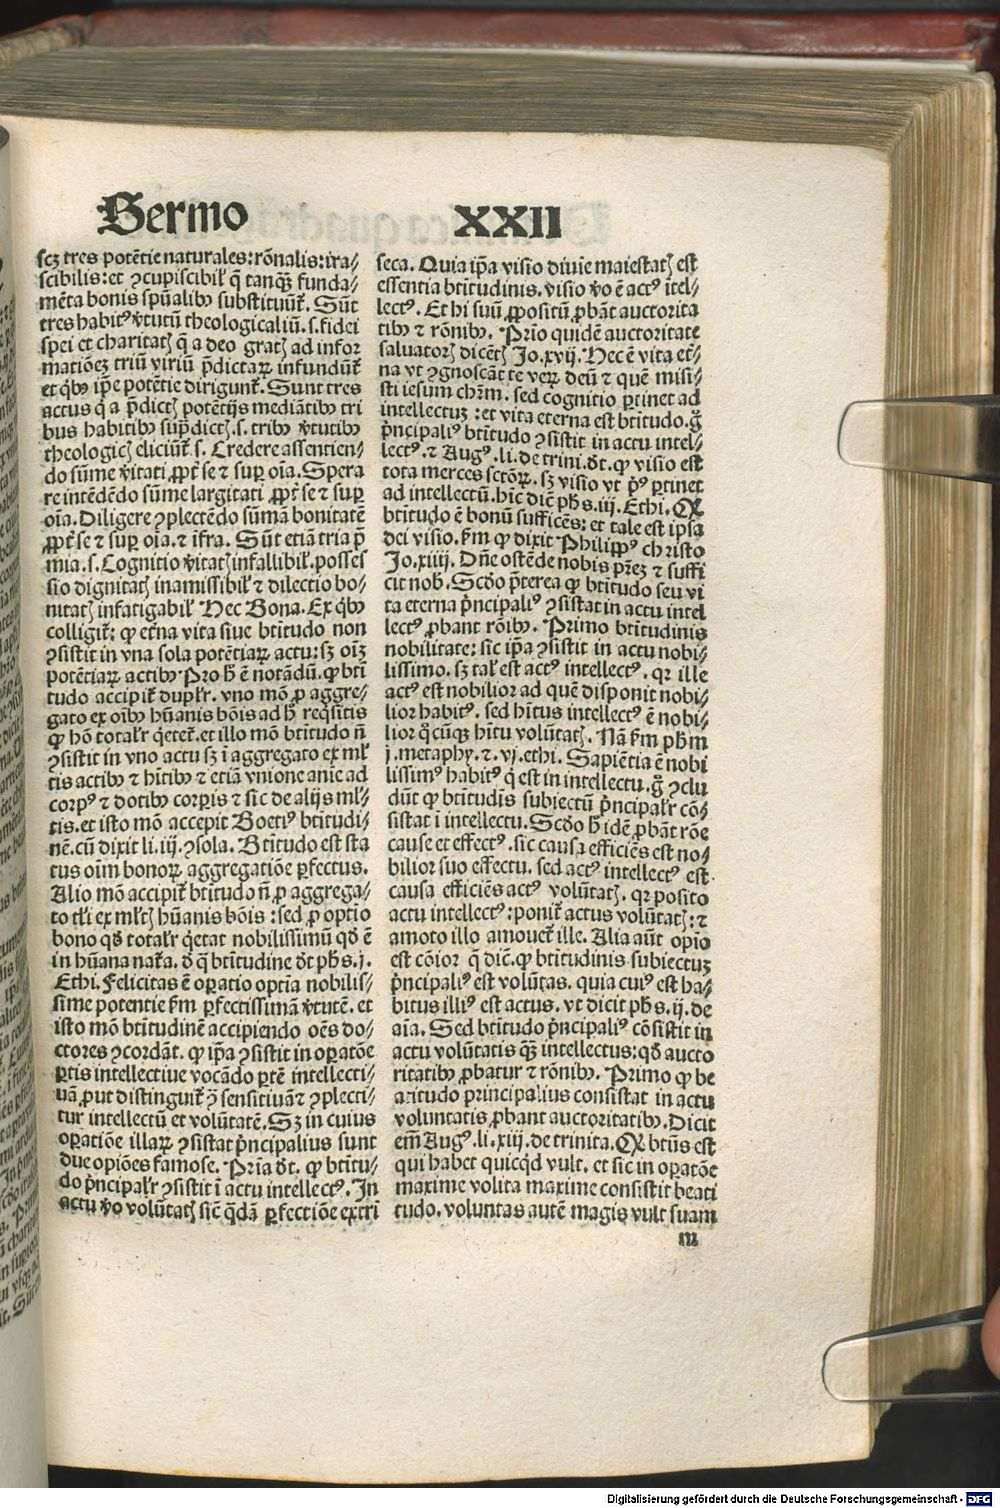 Sermo XXII
scꝫ tres potẽtie naturales: rõnalis: ira⸗
scibilis: et ꝯcupiscibil̓ q̃ tanqꝫ̃ funda⸗
mẽta bonis spũalibꝰ substituũt̃. Sũt
tres habitꝰ v̓tutũ theologicaliũ. s. fidei
spei et charitatꝭ q̃ a deo gratꝭ ad infor
matiõeꝫ triũ viriũ p̃dictaꝝ infundũt̃
et q̓bꝰ ip̃e potẽtie dirigunt̃. Sunt tres
actus q̃ a p̃dictꝭ potẽtijs mediãtibꝰ tri
bus habitibꝰ sup̃dictꝭ. s. tribꝰ v̓tutibꝰ
theologicꝭ eliciũt̃. s. Credere assentien⸗
do sũme v̓itati ꝓpt̃ se ⁊ suꝑ oĩa. Spera
re intẽdẽdo sũme largitati ꝓpt̃ se ⁊ suꝑ
oĩa. Diligere ꝯplectẽdo sũmã bonitatẽ
ꝓpt̃ se ⁊ suꝑ oĩa. ⁊ ĩfra. Sũt etiã tria p̃
mia. s. Cognitio v̓itatꝭ infallibil̓. posses
sio dignitatꝭ inamissibil̓ ⁊ dilectio bo⸗
nitatꝭ infatigabil̓ Hec Bona. Ex q̓bꝰ
colligit̃: ꝙ et̓na vita siue bt̃itudo non
ꝯsistit in vna sola potẽtiaꝝ actu: sꝫ oĩꝫ
potẽtiaꝝ actibꝰ Pro h̃ ẽ notãdũ. ꝙ bt̃i
tudo accipit̃ dupl̓r. vno mõ ꝓ aggre⸗
gato ex oĩbꝰ hũanis bõis ad h̃ req̓sitis
ꝙ hõ total̓r q̓etet̃. et illo mõ bt̃itudo nõ
ꝯsistit in vno actu sꝫ ĩ aggregato ex ml̓
tis actibꝰ ⁊ hĩtibꝰ ⁊ etiã vnione anie ad
corpꝰ ⁊ dotibꝰ corꝑis ⁊ sic de alijs ml̓⸗
tis. et isto mõ accepit Boetiꝰ bt̃itudi⸗
nẽ. cũ dixit li. iij. ꝯsola. Bt̃itudo est sta
tus oĩm bonoꝝ aggregatiõe ꝑfectus.
Alio mõ accipit̃ bt̃itudo nõ ꝓ aggrega⸗
to tl̓i ex ml̓tꝭ hũanis bõis: sed ꝓ optĩo
bono qd̓ total̓r q̓etat nobilissimũ qd̓ ẽ
in hũana nat̃a. d̓ q̃ bt̃itudine d̓t ph̓s. j.
Ethi. Felicitas ẽ oꝑatio optĩa nobilis⸗
sime potentie s̓m ꝑfectissimã v̓tutẽ. et
isto mõ bt̃itudinẽ accipiendo oẽs do⸗
ctores ꝯcordãt. ꝙ ip̃a ꝯsistit in oꝑatõe
ꝑtis intellectiue vocãdo ꝑtẽ intellecti⸗
uã ꝓut distinguit̃ ꝯ̃ sensitiuã ⁊ ꝯplecti⸗
tur intellectũ et volũtatẽ. Sꝫ in cuius
oꝑatiõe illaꝝ ꝯsistat p̓ncipalius sunt
due opiões famose. Pria d̓t. ꝙ bt̃itu⸗
do p̓ncipal̓r ꝯsistit ĩ actu intellectꝰ. In
actu v̓o volũtatꝭ sic̃ q̃dã ꝑfectiõe extri
seca. Quia ip̃a visio diuie maiestatꝭ est
essentia bt̃itudinis. visio v̓o ẽ actꝰ ĩtel⸗
lectꝰ. Et hi suũ ꝓpositũ ꝓbãt auctorita
tibꝰ ⁊ rõnibꝰ. Prio quidẽ auctoritate
saluatorꝭ dicẽtꝭ Jo. xvij. Hec ẽ vita et̓⸗
na vt ꝯgnoscãt te veꝝ deũ ⁊ quẽ misi⸗
sti iesum chr̃m. sed cognitio ꝑtinet ad
intellectuꝫ: et vita eterna est bt̃itudo. g̃
p̓ncipaliꝰ bt̃itudo ꝯsistit in actu intel⸗
lectꝰ. ⁊ Augꝰ. li. de trini. d̓t. ꝙ visio est
tota merces sctõꝝ. sꝫ visio vt p̓ꝰ ꝑtinet
ad intellectũ. hĩc dic̃ ph̓s. iij. Ethi. Qꝙ
btitudo ẽ bonũ sufficẽs: et tale est ipsa
dei visio. s̓m ꝙ dixit Philippꝰ christo
Jo. xiiij. Dñe ostẽde nobis pr̃eꝫ ⁊ suffi
cit nob̓. Scd̓o p̃terea ꝙ bt̃itudo seu vi
ta eterna p̓ncipaliꝰ ꝯsistat in actu intel
lectꝰ ꝓbant rõibꝰ. Primo bt̃itudinis
nobilitate: sic ip̃a ꝯsistit in actu nobi⸗
lissimo. sꝫ tal̓ est actꝰ intellectꝰ. qꝛ ille
actꝰ est nobilior ad quẽ disponit nobi⸗
lior habitꝰ. sed hĩtus intellectꝰ ẽ nobi⸗
lior q̃cũqꝫ hĩtu volũtatꝭ. Nã s̓m ph̓m
j. metaphy. ⁊. vj. ethi. Sapiẽtia ẽ nobi
lissimꝰ habitꝰ q̓ est in intellectu. g̃ ꝯclu
dũt ꝙ bt̃itudĩs subiectũ p̓ncipal̓r cõ⸗
sistat ĩ intellectu. Scd̓o h̃ idẽ ꝓbãt rõe
cause et effectꝰ. sic causa efficiẽs est no⸗
bilior suo effectu. sed actꝰ intellectꝰ est
causa efficiẽs actꝰ volũtatꝭ. qꝛ posito
actu intellectꝰ: ponit̃ actus volũtatꝭ: ⁊
amoto illo amouet̃ ille. Alia aũt opio
est cõior q̃ dic̃. ꝙ bt̃itudinis subiectuꝫ
p̓ncipaliꝰ est volũtas. quia cuiꝰ est ha⸗
bitus illiꝰ est actus. vt dicit ph̓s. ij. de
aĩa. Sed bt̃itudo p̓ncipaliꝰ cõsistit in
actu volũtatis qꝫ̃ intellectus: qd̓ aucto
ritatibꝰ ꝓbatur ⁊ rõnibꝰ. Primo ꝙ be
atitudo principalius consistat in actu
voluntatis ꝓbant auctoritatibꝰ. Dicit
em̃ Augꝰ. li. xiij. de trinita. Qꝙ bt̃us est
qui habet quicq̓d vult. et sic in oꝑatõe
maxime volita maxime consistit beati
tudo. voluntas autẽ magis vult suam
m
Digitalisierung gefördert durch die Deutsche Forschungsgemeinschaft - DFG